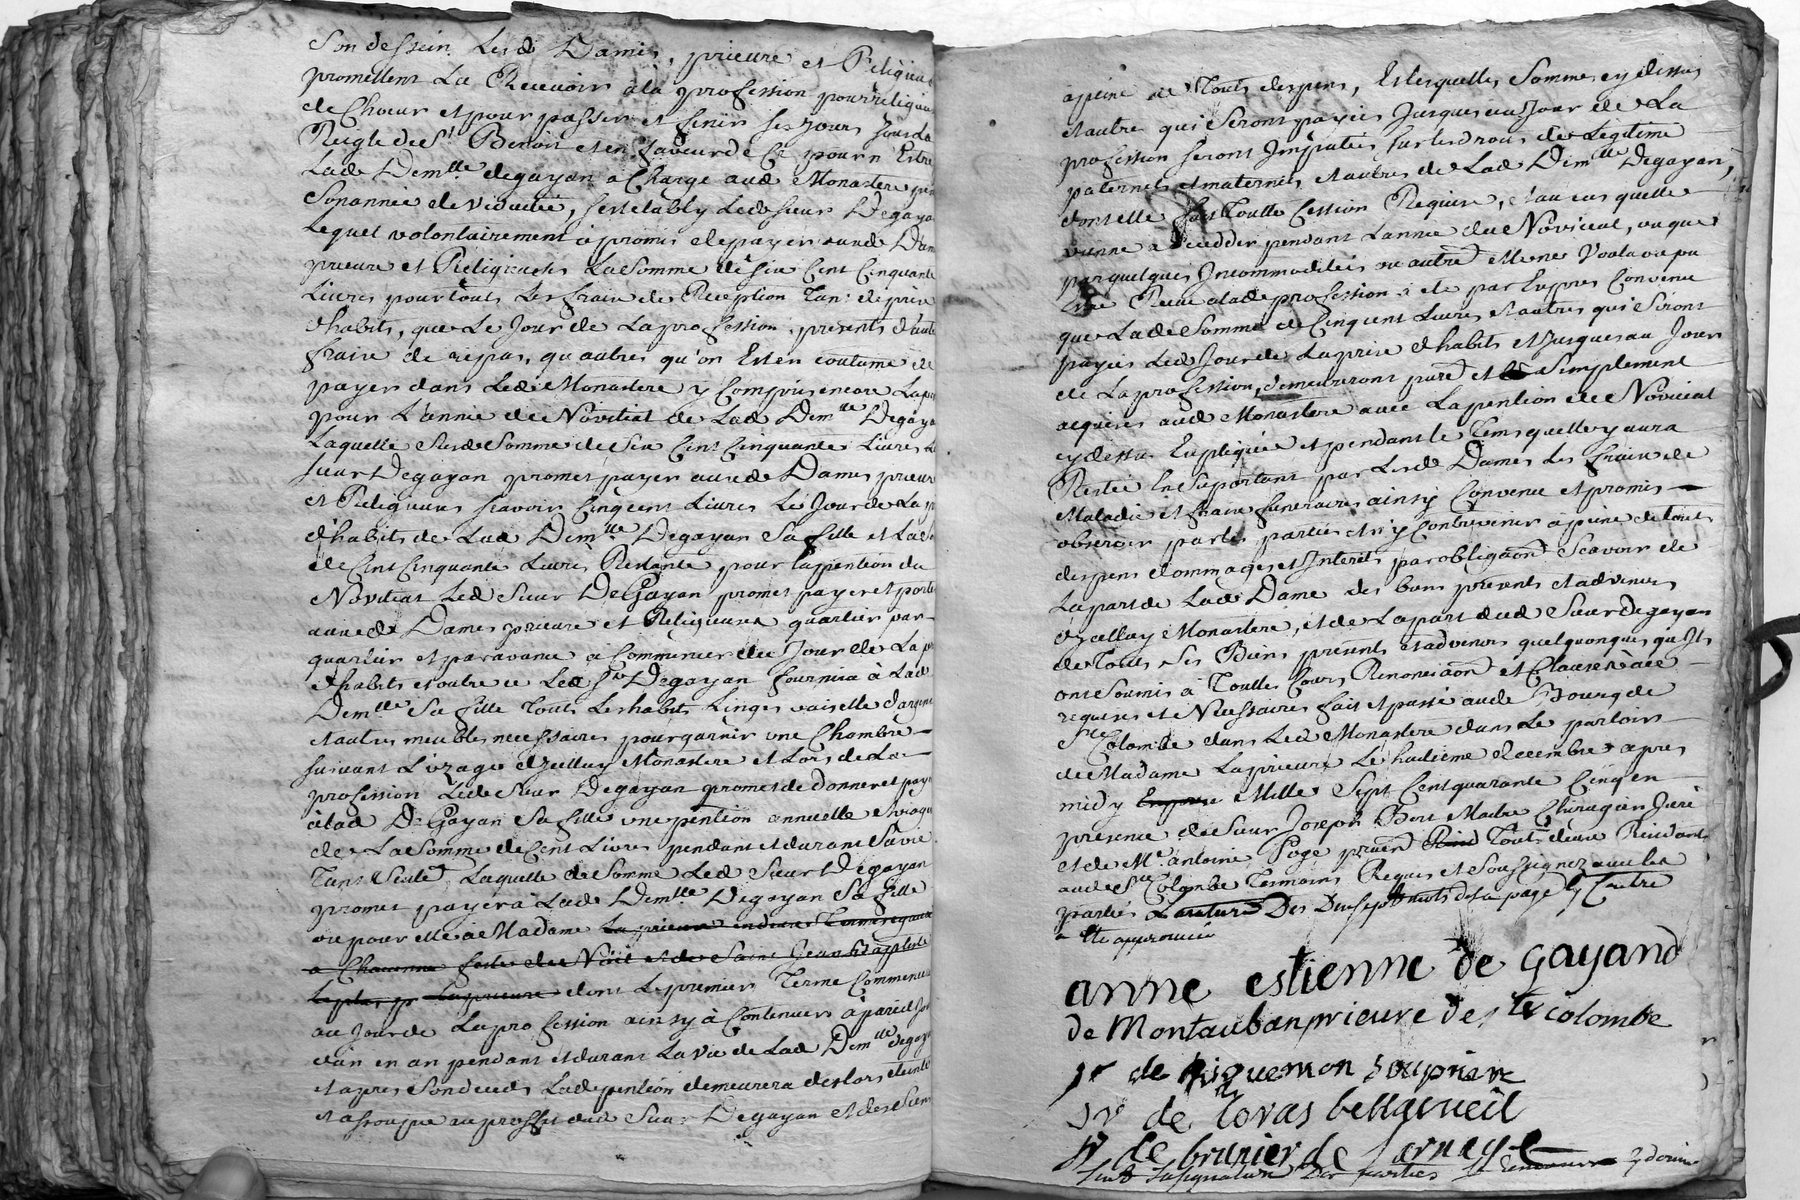 Son dessein Lesd Dames, prieure et Religieu
promettent La Recevoir à la profession pour religieu
de Choeur et pour passer et finir ses jours sous La
Reigle de St Benoit et en faveur de Ce pour n Estre
Lade Demlle degayan à Charge aud Monastere pen
Son année de viduité, s'est etably led sieur Degaya
Lequel volontairement à promis de payer aud Dam
prieure et Religieuses La Somme de Six Cent Cinquante
Livres pour touts Les fraix de Reception Tant de prise
d'habits, que Le Jour de La profession, presents d'aut
fraix de repas, qu autres qu'on Est en coutume de
payer dans Led Monastere y Compris encore La pen
pour L'année de Novitiat de Lad Demlle Degaya
Laquelle Susde Somme de Six Cent Cinquante Livres Le
sieur Degayan promet payer auxd Dames prieure
et Religieuses scavoir Cinq Cent Livres Le Jour de La p
d'habits de Lad Demlle Degayan Sa fille et La
de Cent Cinquante Livres Restante pour la pention du
Novitiat Led Sieur DeGayan promet payer et porter
auxd Dames prieure et Religieuses quartier par
quartier et par avance à Commencer du Jour de La p
d'habits et outre ce Led Sr Degayan fournira à Lad
Demlle Sa fille touts Les habits Linges vaiselle d'argent
et autres meubles necessaires pour garnir une Chambre
suivant L'uzage d'icelluy Monastere et Lors de La
profession Led Sieur Degayan promet de donner et paye
à lad DeGayan Sa fille une pention annuelle et viagere
de La Somme de Cent Livres pendant et durant Sa vie
Tant Seulet, Laquelle de Somme Led Sieur Degayan
promet payer à Lade Demlle Degayan Sa fille
ou pour elle à Madame La prieure en deux Termes egaux
a Chacunne feste de Noël et de Saint Jean Baptiste
La prieure dont Le premier Terme Commencera
au Jour de La profession ainsy à Continuer à pareil Jour
d'an en an pendant et durant La vie de Lad Demlle degaya
et apres Son deceds Lad pention demeurera des lors eteinte
et assoupie au proffit dud Sieur Degayan et des Siens
à peine de Touts depens, Et lesquelles Sommes cy dessus
et autres qui Seront payées Jusques au Jour de La
profession seront Imputées sur Les droits de Legitime
paternels et maternels, et autres de Lad Demlle Degayan,
dont elle fait Toutte Cession Requise, et au cas quelle
vienne à deceder pendant L'année du Noviciat, ou que
par quelques Incommodités ou autremt elle ne Voulut ou pu
Etre Reçue à lade profession, à ete par Expres Convenu
que Lade Somme de Cinq cent Livres et autres qui Seront
payées Led Jour de La prise d'habits et Jusques au Jour
de La profession, demeureront puremt et Simplement
acquises aud Monastere avec La pention de Noviciat
cy dessus Expliquée et pendant le Tems quelle y aura
Restée En Suportant par Lesd Dames Les fraix de
Maladie et fraix funeraires ainsy Convenu et promis
observer par les parties et n'y Contrevenir à peine de touts
depens dommages et Interets par obligaõn Scavoir de
La part de Lad Dame des biens presents et advenir
d'jcelluy Monastere, et de La part dud Sieur degayan
de Touts Ses Biens presents et advenir quelquonques qu Ils
ont Soumis à Touttes Cours, Renonciaõn et Clauses à ce
requises et Necessaires fait et passé aud Bourg de
Ste Colombe dans Led Monastere dans Le parloir
de Madame La prieure Le huitieme Decembre apres
midy Mille Sept Cent quarante Cinq en
presence de Sieur Joseph Bort Maitre Chirugien Juré
et de Me antoine Poge Touts deux Residants
aud Ste Colombe Temoins Requis et Soussignez avec les
parties La rature Des Dixsept mots de la page de L'autre
a été approuvée
anne estienne de gayand
de Montauban prieure de ste colombe
sr de riquemon souprieure
sr de Loras bellacueil
sr de brunier de Larnage
Suit La signature Des parties